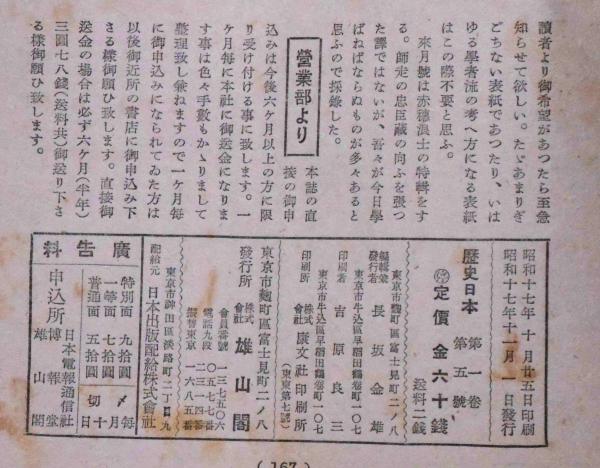 讀者より御希望があつたら至急
知らせて欲しい。たゞあまりぎ
ごちない表紙であつたり、いは
ゆる學者流の考へ方になる表紙
はこの際不要と思ふ。
來月號は赤穗浪士の特輯をす
る。師走の忠臣藏の向ふを張つ
た譯ではないが、吾々が今日學
ばねばならぬものが多々あると
思ふので採錄した。
營業部より
本誌の直
接の御申
込みは今後六ケ月以上の方に限
り受け付ける事に致します。一
ケ月毎に本社に御送金になりま
す事は色々手數もかゝりまして
整理致し兼ねますので一ケ月毎
に御申込みになられてゐた方は
以後御近所の書店に御申込み下
さる樣御願ひ致します。直接御
送金の場合は必ず六ケ月(半年)
三圓七八錢(送料共)御送り下さ
る樣御願ひ致します。
昭和十七年十月廿五日印刷
昭和十七年十一月一日發行
歷史日本 第一卷 第五號
定價金六十錢
送料二錢
東京市麴町區富士見町二ノ八
編輯兼發行者 長坂金雄
東京市牛込區早稻田鶴卷町一〇七
印刷者 吉原良三
東京市牛込區早稻田鶴卷町一〇七
印刷所 株式會社 康文社印刷所
(東東第七號)
東京市麴町區富士見町二ノ八
發行所 株式會社 雄山閣
會員番號 一三七五〇六
電話九段 〇五七七番 二三四番
振替東京 一六八五番
東京市神田區淡路町二丁目九
配給元 日本出版配給株式會社
廣告料
特別面 九拾圓
一等面 七拾圓
普通面 五拾圓
〆切 毎月十日
申込所
日本電報通信社
博報堂
雄山閣
( 167 )